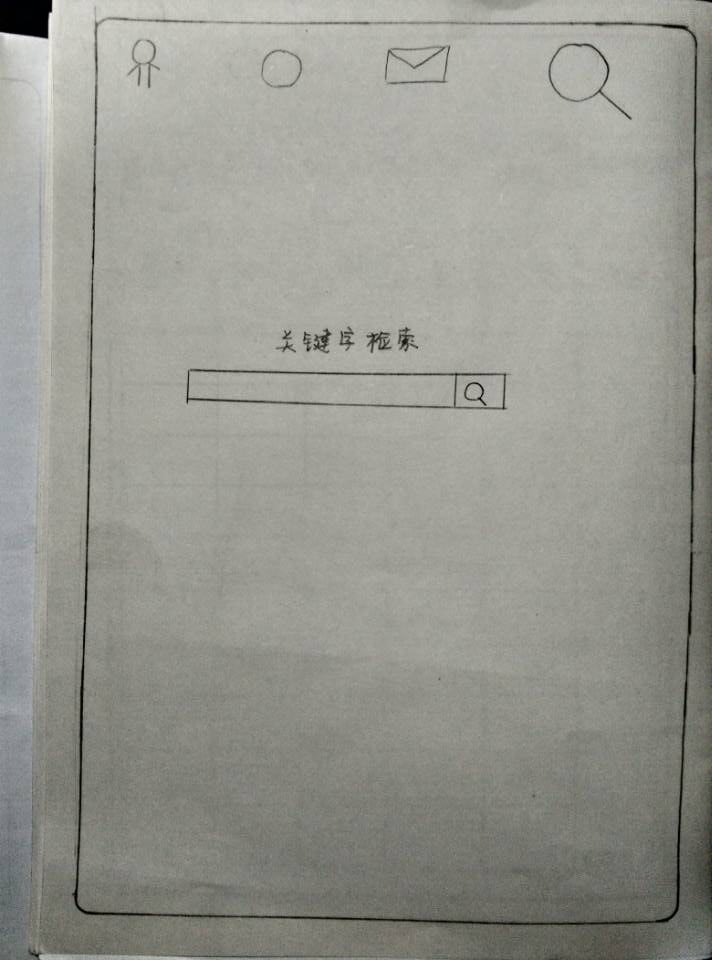 关键字检索